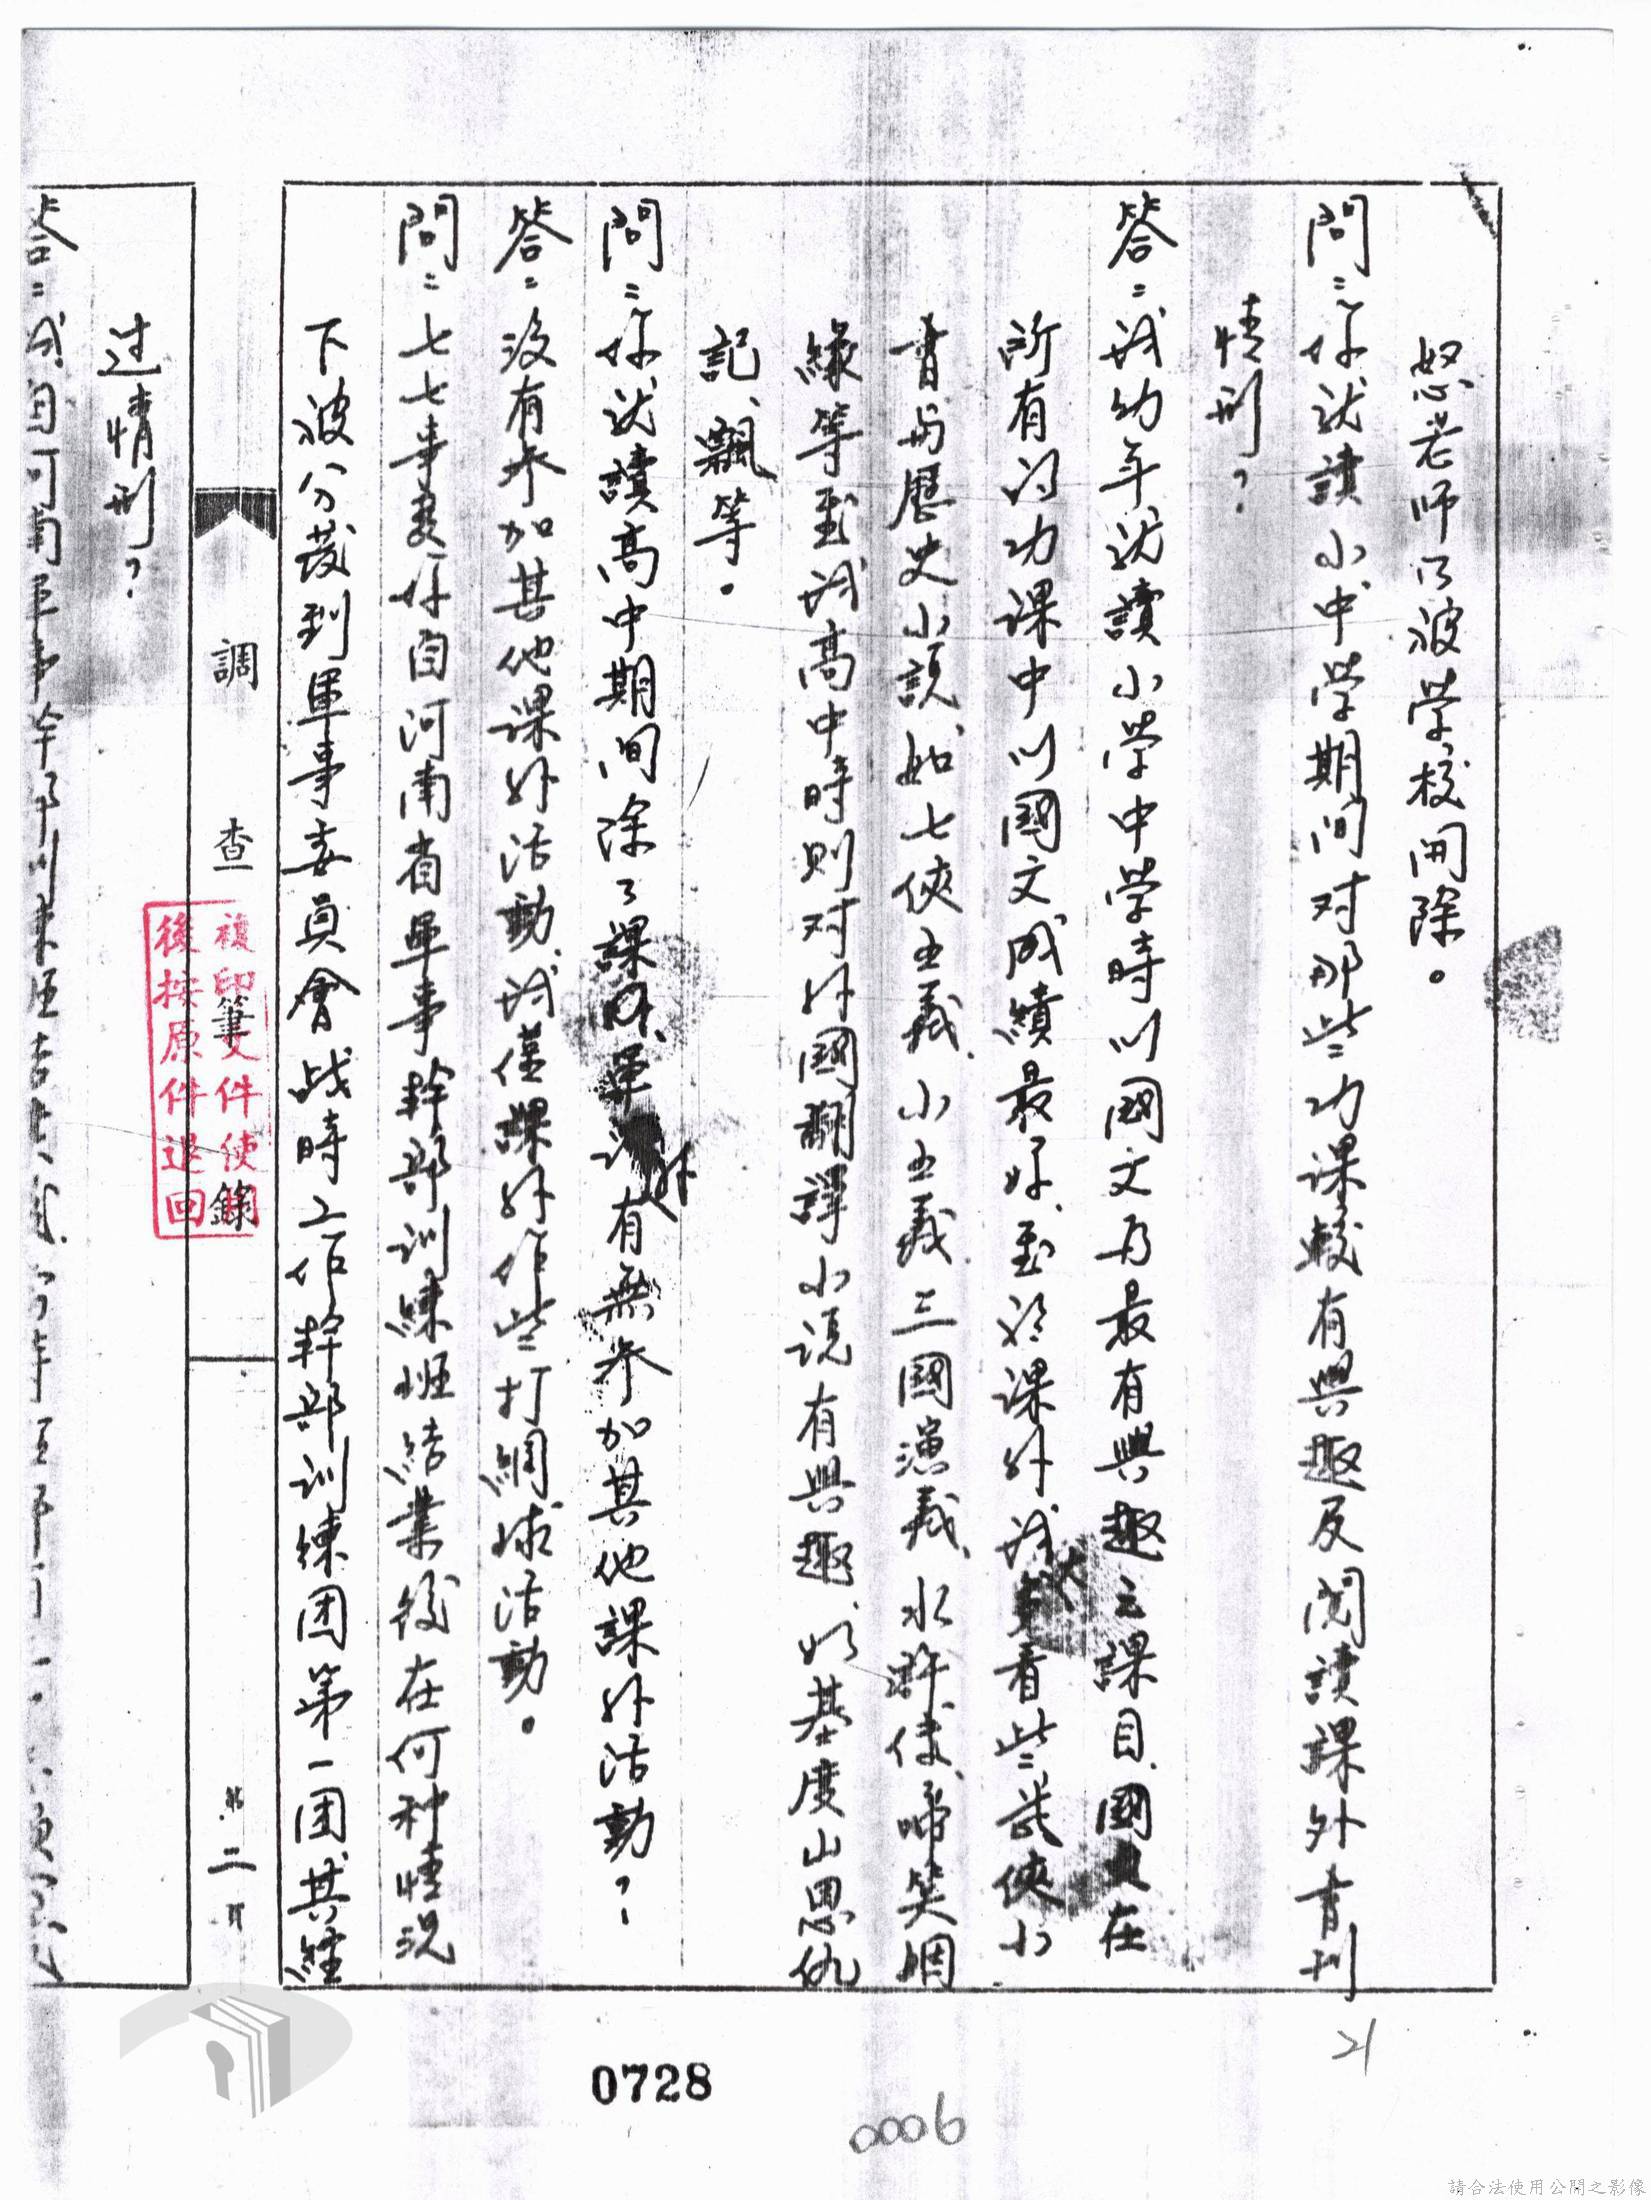 怒老師乃被学校開除。
問：你就讀小、中学期间对那些功课較有興趣及閱读課外書刊
情形？
答：我幼年就讀小学中学時以國文为最有興趣之課目，國文在
所有的功課中以國文成績最好，至於课外我大看些武俠小
書與歷史小說，如七俠五義、小五義、三國演義、水滸传、啼笑姻
緣等，到我高中時则对外國翻譯小说有興趣，如基度山恩仇
記、飄等。
問：你就讀高中期间除了課外有無参加其他課外活動？
答：沒有参加其他課外活動，我僅課外作些打網球活動。
問：七七事变你自河南省軍事幹部訓練班結業後在何种情況
下被分发到軍事委員會战時工作幹部訓练团第一团其經
調查筆錄
第二頁
複印文件使用
後按原件退回
过情形？
0728
0006
21
請合法使用公開之影像